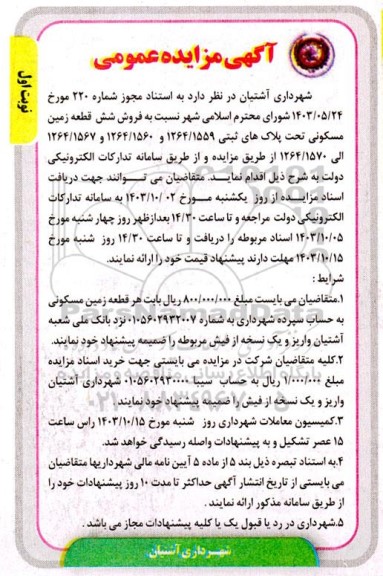 آگهی مزایده عمومی
نوبت اول
شهرداری آشتیان در نظر دارد به استناد مجوز شماره ۲۲۰ مورخ
۱۴۰۳/۰۵/۲۴ شورای محترم اسلامی شهر نسبت به فروش شش قطعه زمین
مسکونی تحت پلاک های ثبتی ۱۲۶۴/۱۵۵۹ و ۱۲۶۴/۱۵۶۰ و ۱۲۶۴/۱۵۶۷
الی ۱۲۶۴/۱۵۷۰ از طریق مزایده و از طریق سامانه تدارکات الکترونیکی
دولت به شرح ذیل اقدام نماید. متقاضیان می توانند جهت دریافت
اسناد مزایده از روز یکشنبه مورخ ۱۴۰۳/۱۰/۰۲ به سامانه تدارکات
الکترونیکی دولت مراجعه و تا ساعت ۱۴/۳۰ بعدازظهر روز چهار شنبه مورخ
۱۴۰۳/۱۰/۰۵ اسناد مربوطه را دریافت و تا ساعت ۱۴/۳۰ روز شنبه مورخ
۱۴۰۳/۱۰/۱۵ مهلت دارند پیشنهاد قیمت خود را ارائه نمایند.
شرایط :
۱.متقاضیان می بایست مبلغ ۸۰۰/۰۰۰/۰۰۰ ریال بابت هر قطعه زمین مسکونی
به حساب سپرده شهرداری به شماره ۰۱۰۵۶۰۲۹۳۲۰۰۷ نزد بانک ملی شعبه
آشتیان واریز و یک نسخه از فیش مربوطه را ضمیمه پیشنهاد خود نمایند.
۲.کلیه متقاضیان شرکت در مزایده می بایستی جهت خرید اسناد مزایده
مبلغ ۱/۰۰۰/۰۰۰ ریال به حساب سیبا ۰۱۰۵۶۰۲۹۳۰۰۰۰ شهرداری آشتیان
واریز و یک نسخه از فیش را ضمیمه پیشنهاد خود نمایند
۳.کمیسیون معاملات شهرداری روز شنبه مورخ ۱۴۰۳/۱۰/۱۵ راس ساعت
۱۵ عصر تشکیل و به پیشنهادات واصله رسیدگی خواهد شد.
۴.به استناد تبصره ذیل بند ۵ از ماده ۵ آیین نامه مالی شهرداریها متقاضیان
می بایستی از تاریخ انتشار آگهی حداکثر تا مدت ۱۰ روز پیشنهادات خود را
از طریق سامانه مذکور ارائه نمایند .
۵.شهرداری در رد یا قبول یک یا کلیه پیشنهادات مجاز می باشد .
شهرداری آشتیان